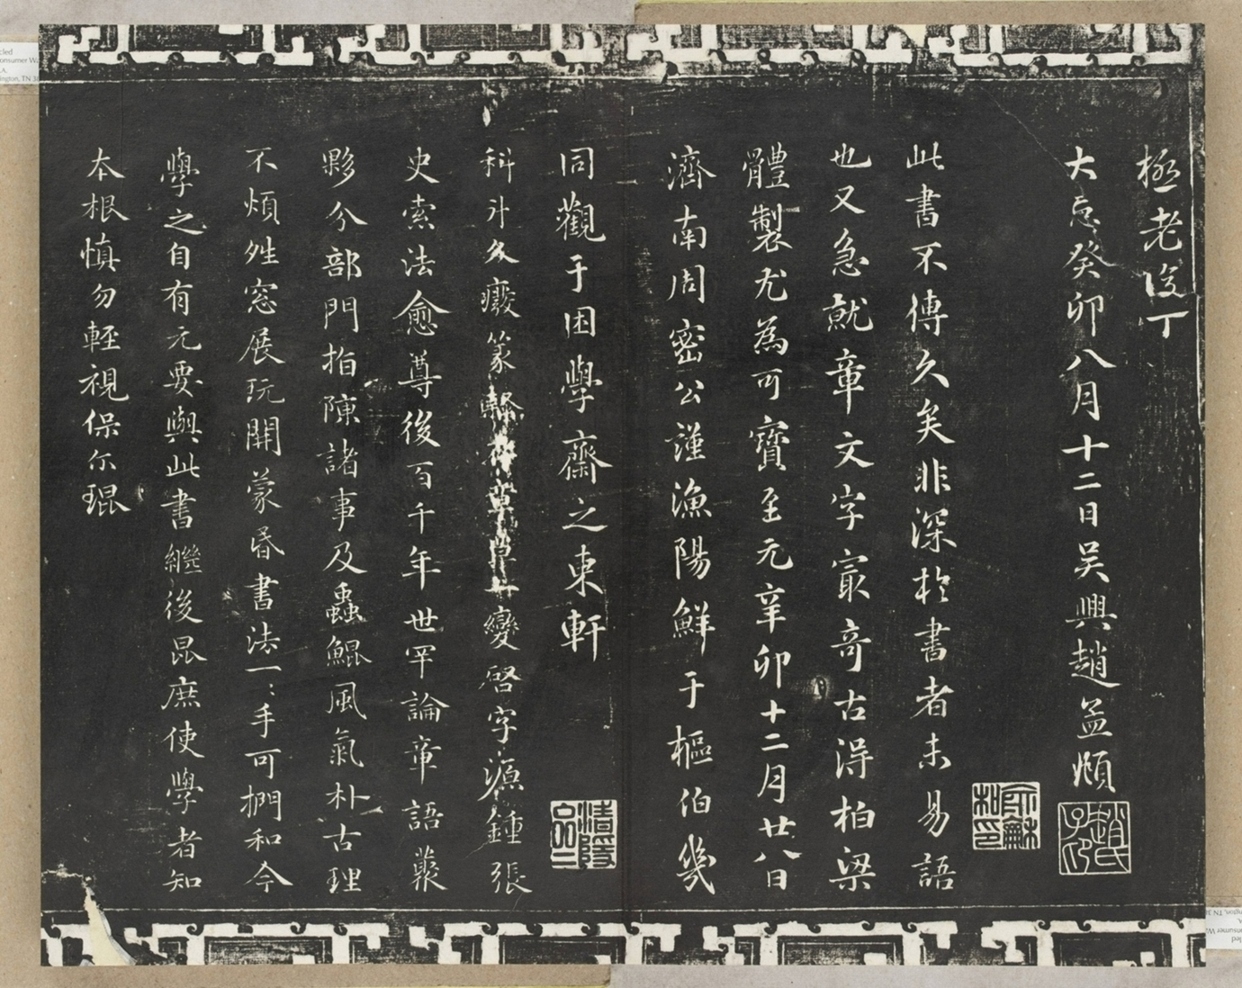 極老後丁
大悳癸卯八月十二日吴興趙孟頫
此書不傳久矣非深於書者未易語
也又急就章文字㝡奇古淂柏梁
體製尤為可寶至元辛卯十二月廿八日
濟南周密公謹漁陽鮮于樞伯幾
同觀于困學齋之東軒
科斗久癈篆
變啓字源鍾張
史索法愈尊後百千年世罕論章語叢
夥分部門指陳諸事及蟲鯤風氣朴古理
不煩姓窓展玩開蒙昏書法一〻手可捫和今
學之自有元要與此書繼後昆庶使學者知
本根慎勿輊視保尓琨
趙氏子昂